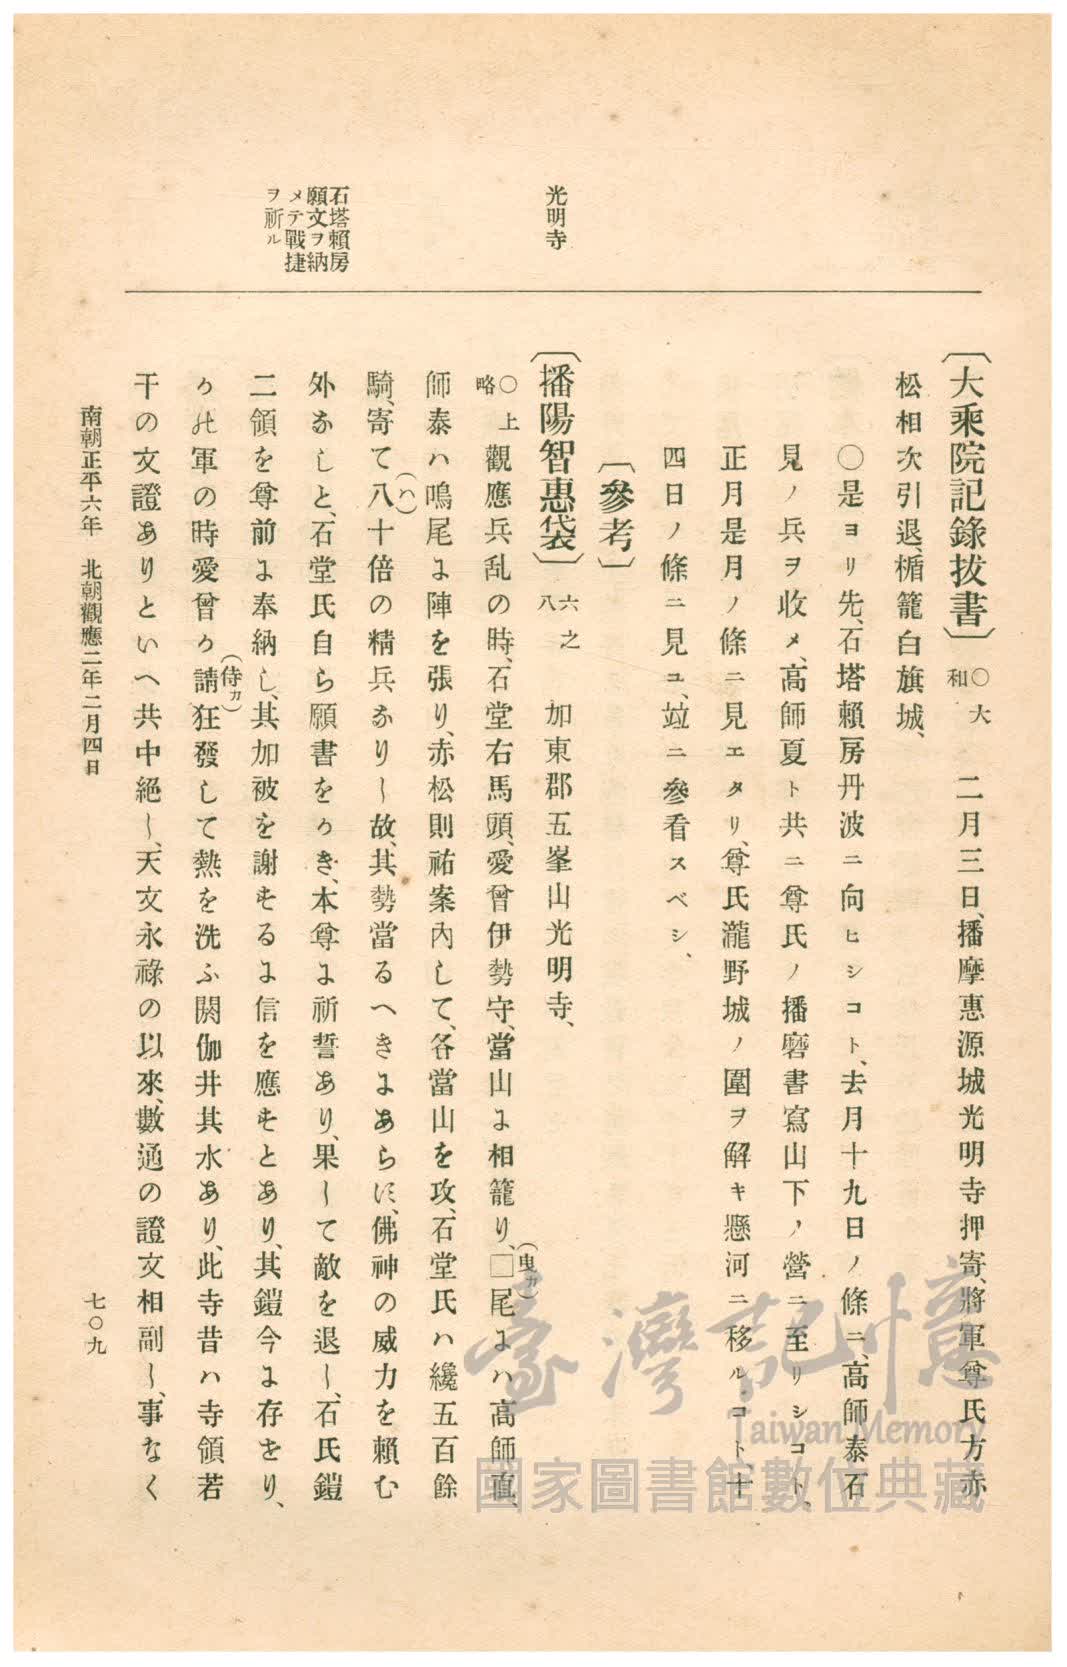 光明寺
石塔賴房
願文ヲ納
メテ戰捷
ヲ祈ル
〔大乘院記錄拔書〕○大和 二月三日、播摩惠源城光明寺押寄、將軍尊氏方赤
松相次引退、楯籠白旗城、
○是ヨリ先、石塔賴房丹波ニ向ヒシコト、去月十九日ノ條ニ、高師泰石
見ノ兵ヲ收メ、高師夏ト共ニ尊氏ノ播磨書寫山下ノ營ニ至リシコト、
正月是月ノ條ニ見エタリ、尊氏瀧野城ノ圍ヲ解キ懸河ニ移ルコト、十
四日ノ條ニ見ユ、竝ニ參看スベシ、
〔參考〕
〔播陽智惠袋〕六之八 加東郡五峯山光明寺、
○上略 觀應兵乱の時、石堂右馬頭、愛曾伊勢守、當山に相籠り、□(曳カ)尾にハ高師直、
師泰ハ鳴尾に陣を張り、赤松則祐案內して、各當山を攻、石堂氏ハ纔五百餘
騎、寄て(ハ)八十倍の精兵なりし故、其勢當るへきにあらに、佛神の威力を賴む
外なしと、石堂氏自ら願書をかき、本尊に祈誓あり、果して敵を退し、石氏鎧
二領を尊前に奉納し、其加被を謝せるに信を應せとあり、其鎧今に存せり、
かの軍の時愛曾か請(侍カ)狂發して熱を洗ふ閼伽井其水あり、此寺昔ハ寺領若
干の文證ありといへ共中絕し、天文永祿の以來、數通の證文相副し、事なく
南朝正平六年 北朝觀應二年二月四日
七〇九
臺灣記憶
Taiwan Memory
國家圖書館數位典藏